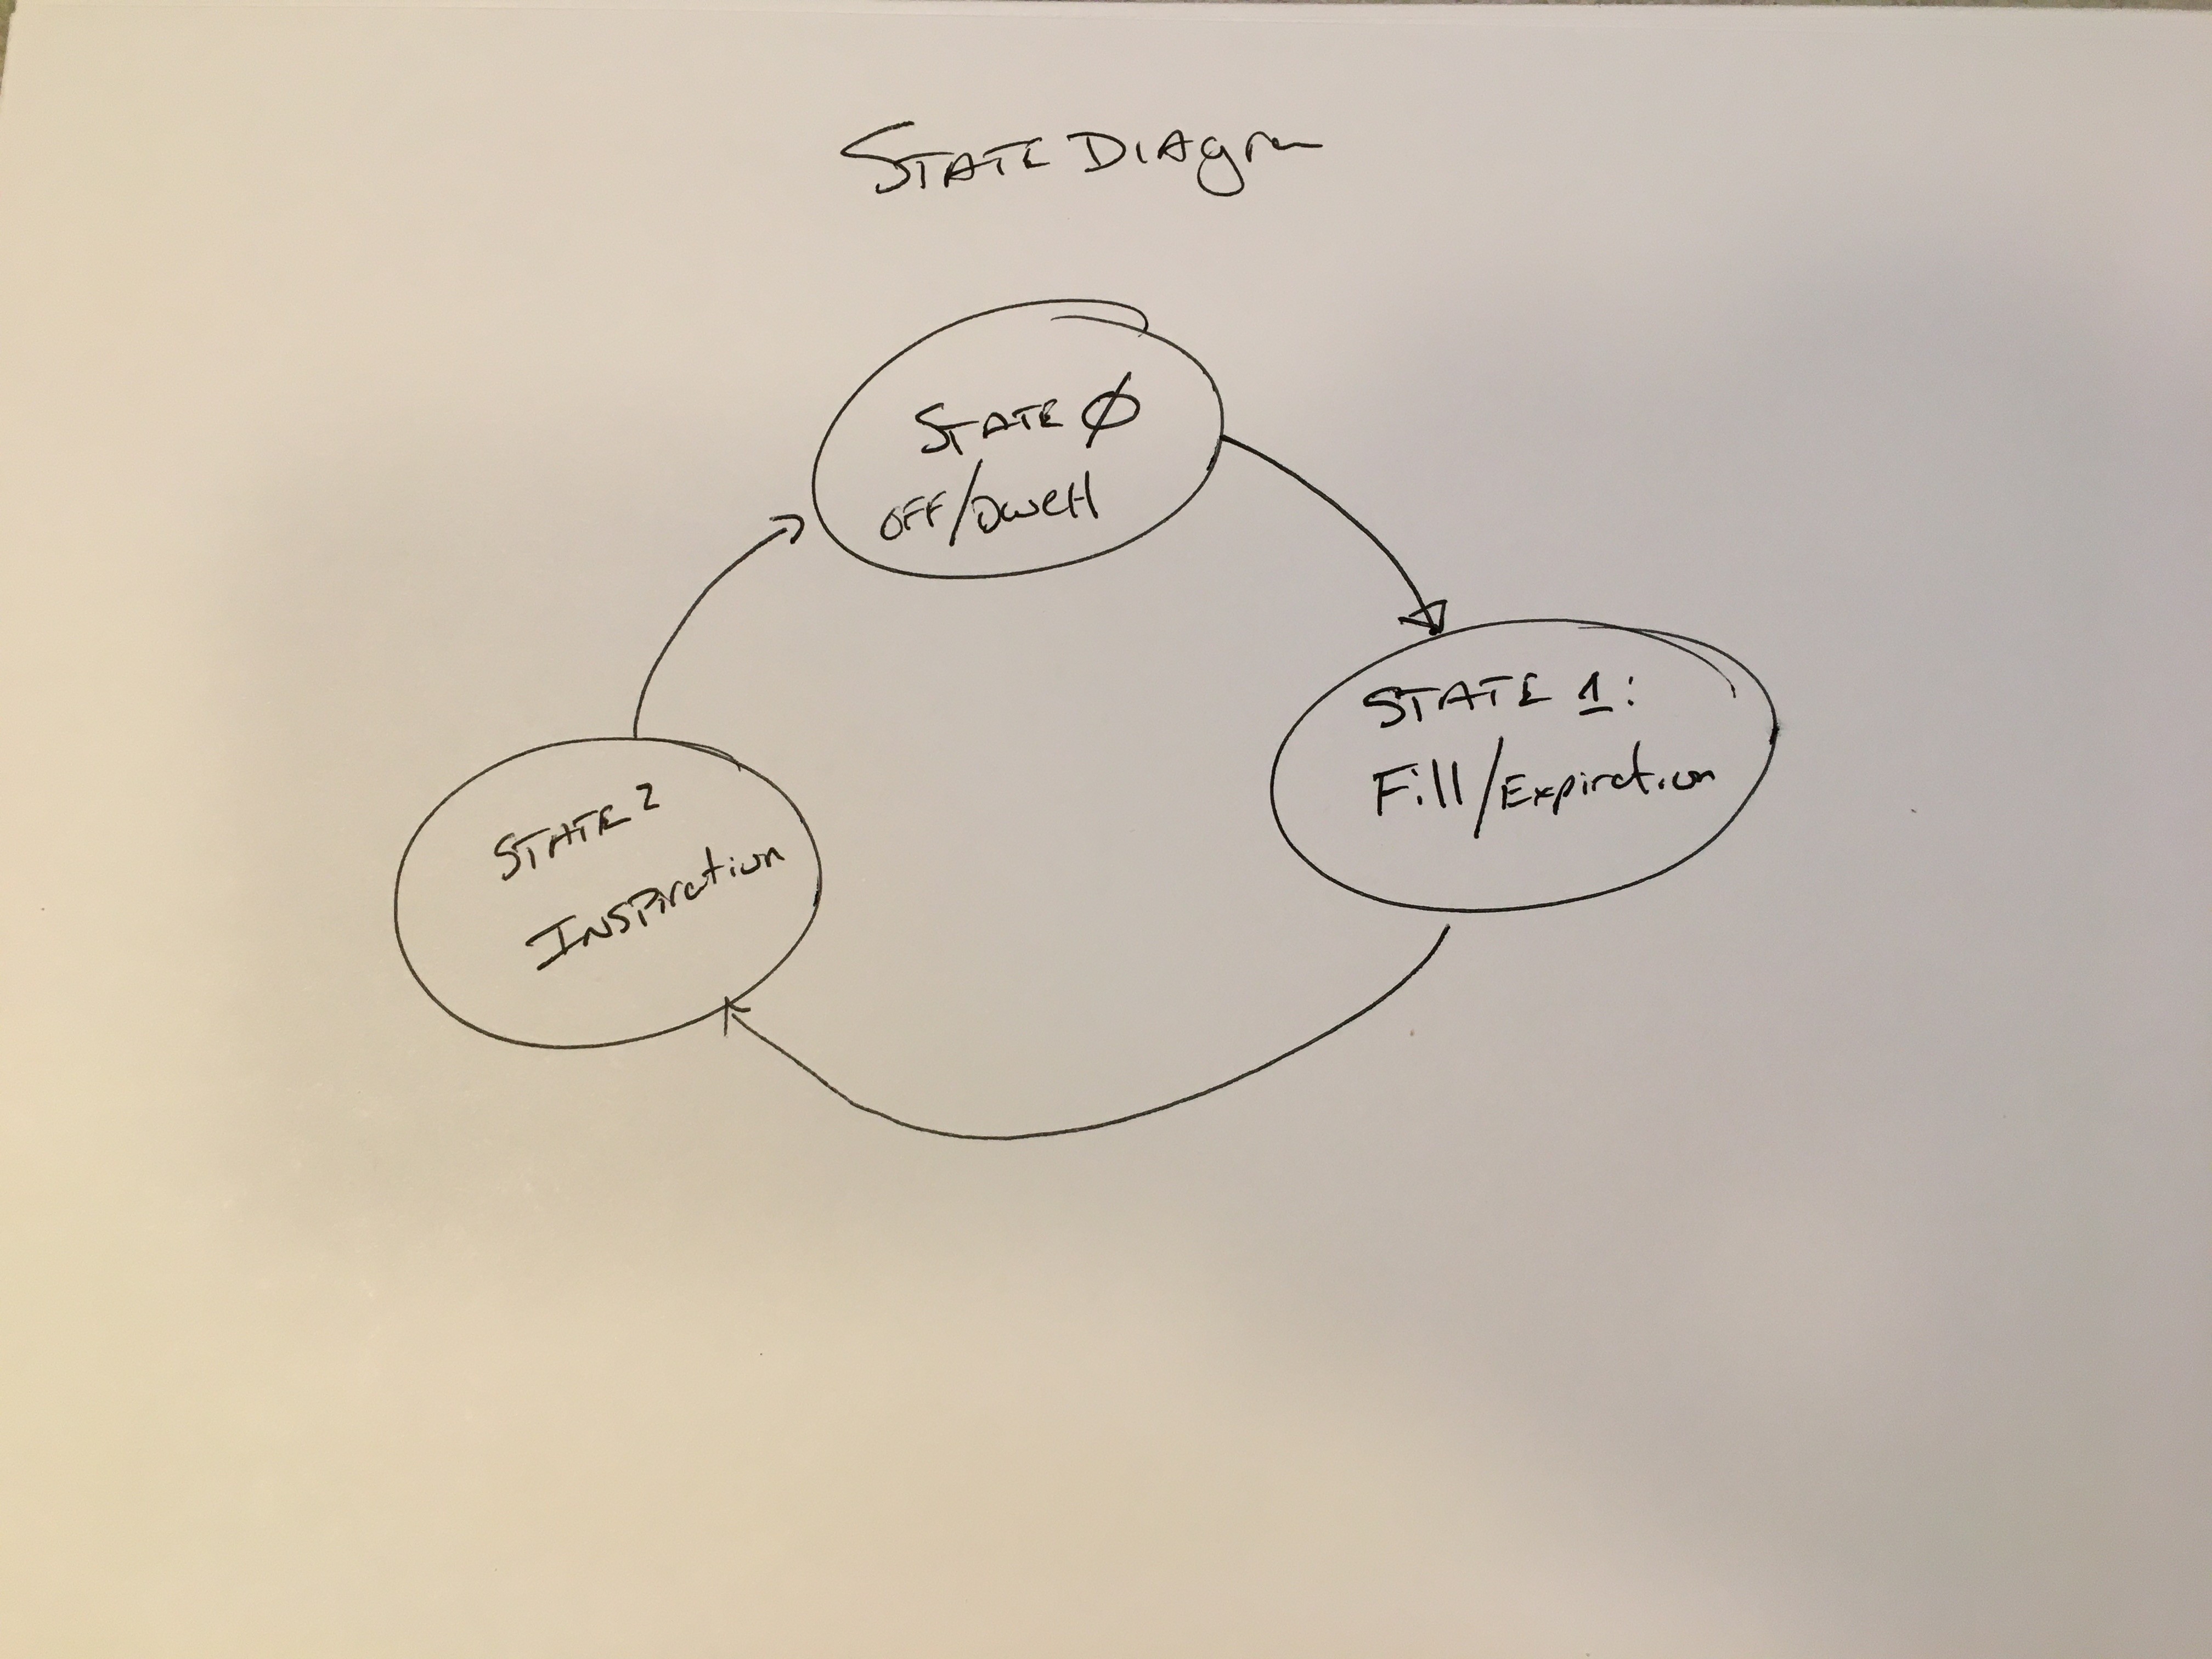 STATE DIAgrm
STATE Ø
OFF/Dwell
STATE 1:
Fill/Expiration
STATE 2
INSPiration